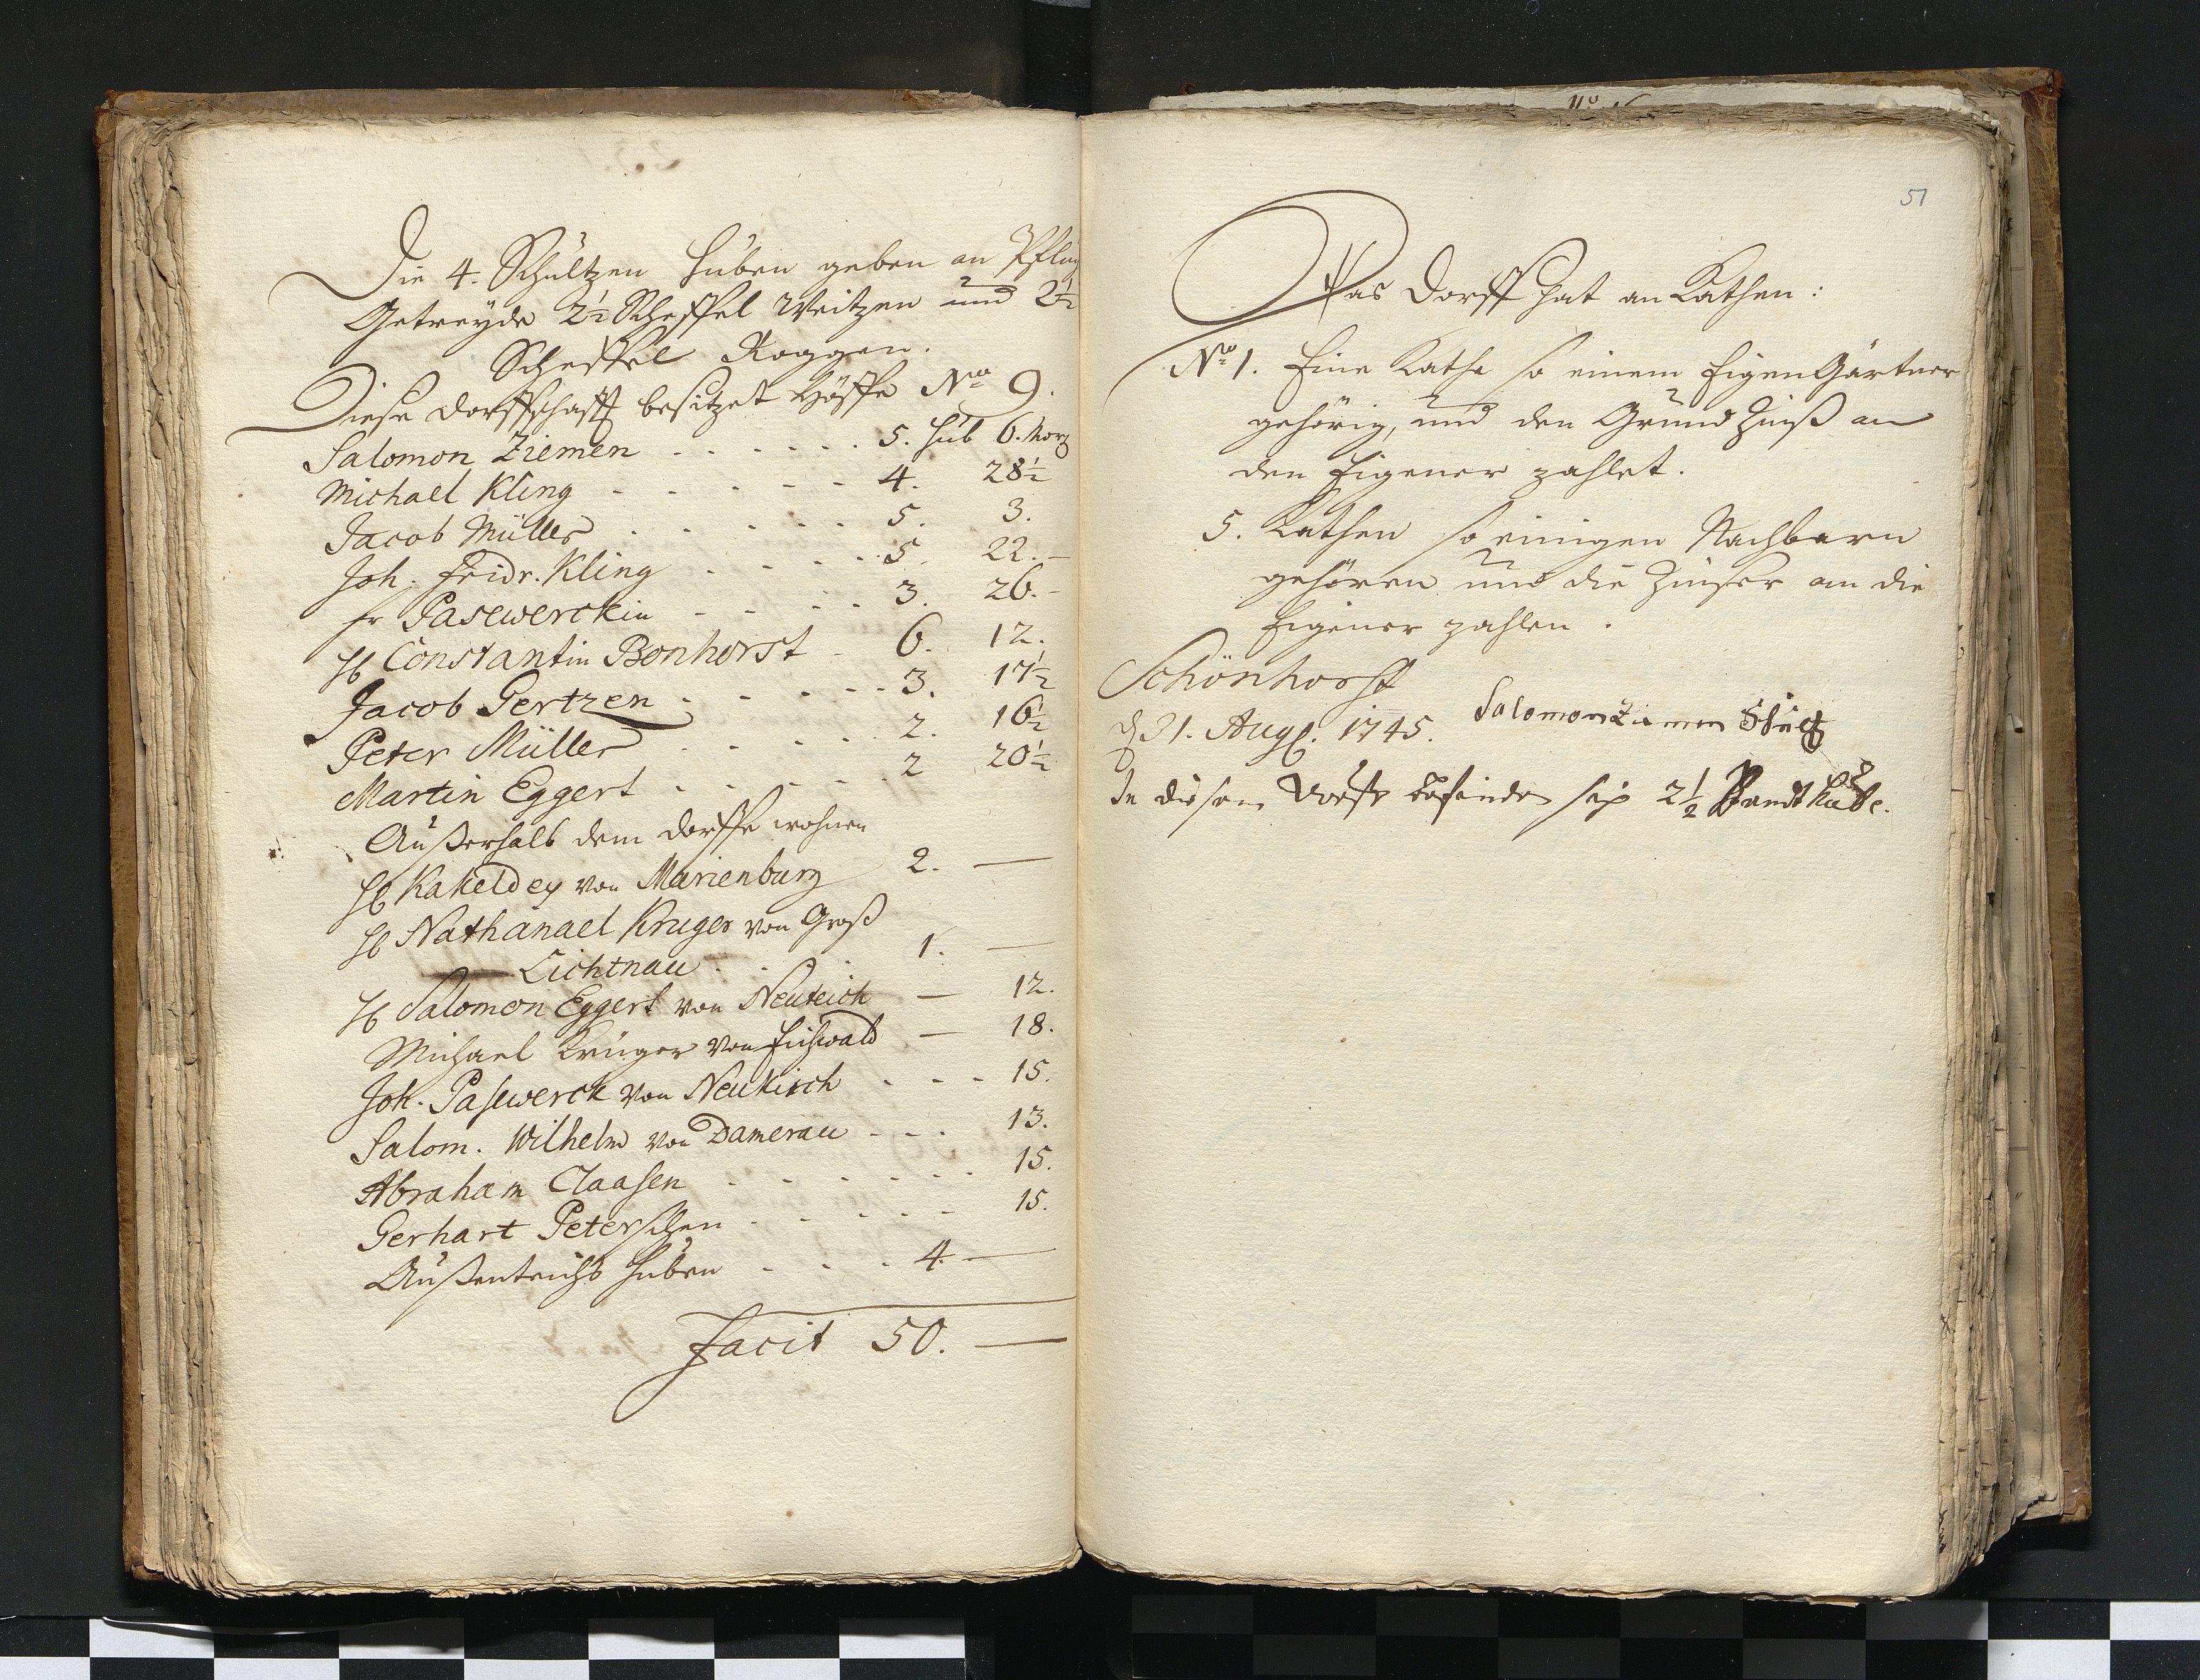 Die 4. Schultzen Huben geben an Pflug
Getreyde 2½ Scheffel Weitzen und 2½
Scheffel Roggen.
Diese Dorffschafft besitzet Höffe No 9.
Salomon Ziemen - - - - - 5. Hub 6. Morg
Michael Kling - - - - - 4. 28½
Jacob Müller - - - - - 5. 3.
Joh. Fridr. Kling - - - - 5. 22. -
Fr Pasewerckin - - - - 3. 26. -
H Constantin Bonhorst - 6. 12.
Jacob Gertzen - - - - - 3. 17½
Peter Müller - - - - - 2. 16½
Martin Eggert - - - - - 2 20½
Außerhalb dem Dorffe wohnen
H Kakeldey von Marienburg 2. —
H Nathanael Kruger von Groß
Lichtnau - - - 1. —
H Salomon Eggert von Neuteich — 12.
Michael Krüger von Eichwald — 18.
Joh. Pasewerck von Neukirch - - - 15.
Salom. Wilhelm von Damerau - - - 13.
Abraham Claasen - - - - - - 15.
Gerhart Peterschen - - - - - 15.
Außenteichs Huben - - - 4. —
Facit 50. —
51
Das Dorff hat an Kathen:
No 1. Eine Kathe so einem Eigen Gärtner
gehörig, und den Grund Zinß an
den Eigener zahlet.
5. Kathen so einigen Nachbarn
gehören und die Zinser an die
Eigener zahlen.
Schönhorst
d 21. Aug. 1745. Salomon Ziemen Schultz
In diesem Dorffe befinden sich 2½ Hube.